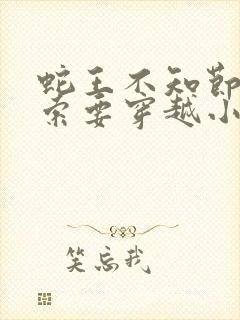 蛇王不知节
索要穿越小
笑忘我